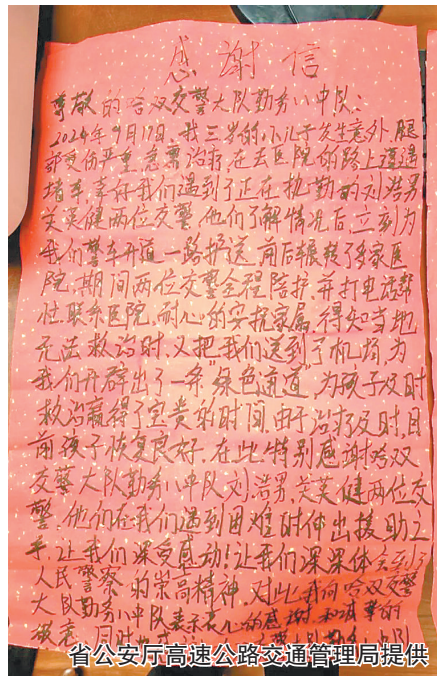 感谢信
尊敬的哈双交警大队勤务八中队:
2024年9月17日,我三岁的小儿子发生意外,腿
部受伤严重,急需治疗,在去医院的路上遭遇
堵车,幸好我们遇到了正在执勤的刘浩男
关英健两位交警,他们了解情况后,立刻为
我们警车开道一路护送,前后辗转了多家医
院,期间两位交警全程陪护,并打电话帮
忙联系医院,耐心的安抚家属,得知当地
无法救治时,又把我们送到了机场,为
我们开辟出了一条“绿色通道”,为孩子及时
救治赢得了宝贵的时间,由于治疗及时,目
前孩子恢复良好,在此,特别感谢哈双
交警大队勤务八中队刘浩男,关英健两位交
警,他们在我们遇到困难时伸出援助之
手,让我们深受感动!让我们深深体会到了
人民警察的崇高精神,对此我向哈双交警
大队勤务八中队表示衷心的感谢和诚挚的
敬意,同时
省公安厅高速公路交通管理局提供